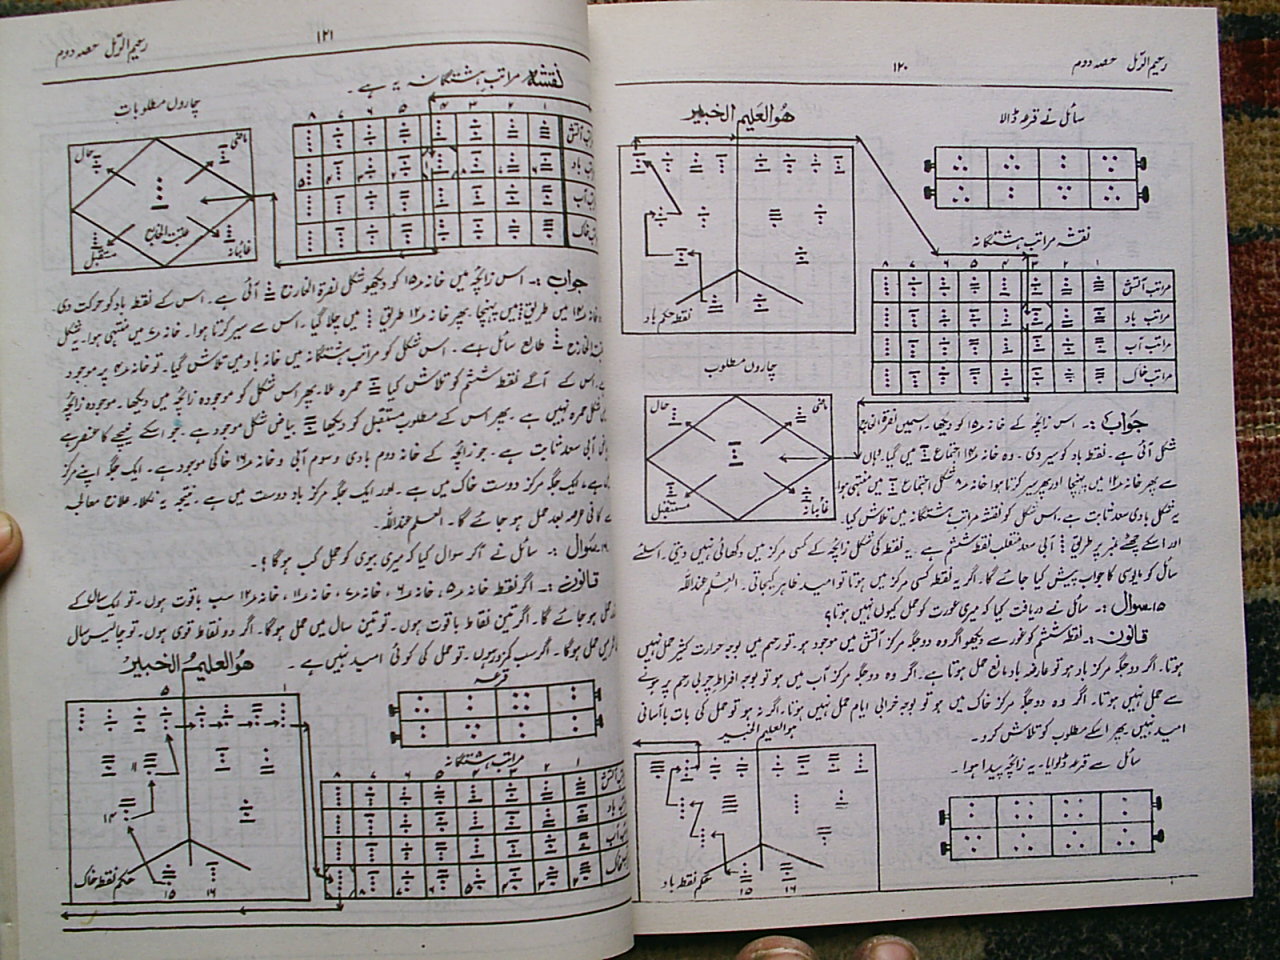 رحیم الرّمل حصہ دوم
۱۲۰
سائل نے قرعہ ڈالا
ھُوالعَلیم الخبیر
نقشہ مراتب ہشتگانہ
۱ ۲ ۳ ۴ ۵ ۶ ۷ ۸
مراتب آتش
مراتب باد
مراتب آب
مراتب خاک
نقطہ حکم باد
چاروں مطلوب
ماضی
حال
غائبانہ
مستقبل
جواب :۔ اس زائچہ کے خانہ ۱۵ کو دیکھا۔ سمیں نصرۃ الخارج
شکل آئی ہے۔ نقطہ باد کو سیر دی۔ وہ خانہ ۱۴ اجتماع میں گیا۔ وہاں
سے پھر خانہ ۱۲ میں پہنچا اور پھر سیر کرتا ہوا خانہ ۸ شکل اجتماع میں منتہی ہوا
یہ شکل بادی سعد ثابت ہے۔ اس شکل کو نقشہ مراتب ہشتگانہ میں تلاش کیا۔
اور اسکے چھٹے نمبر پر طریق آبی سعد منقلب نقطہ ششم ہے۔ یہ نقطہ کی شکل زائچہ کے کسی مرکز میں دکھائی نہیں دیتی۔ اسلئے
سائل کو مایوسی کا جواب پیش کیا جائے گا۔ اگر یہ نقطہ کسی مرکز میں ہوتا تو امید ظاہر کیجاتی۔ العلم عنداللہ
۱۵ سوال :۔ سائل نے دریافت کیا کہ میری عورت کو حمل کیوں نہیں ہوتا؟
قانون :۔ نقطہ ششم کو غور سے دیکھو اگر وہ دو جگہ مرکز آتش میں موجود ہو۔ تو رحم میں بوجہ حرارت کثیر حمل نہیں
ہوتا۔ اگر دو جگہ مرکز باد ہو تو عارضہ باد مانع حمل ہوتا ہے۔ اگر وہ دو جگہ مرکز آب میں ہو تو بوجہ افراط چربی رحم پر ہونے
سے حمل نہیں ہوتا۔ اگر وہ دو جگہ مرکز خاک میں ہو تو بوجہ خرابی ایام حمل نہیں ہوتا۔ اگر نہ ہو تو حمل کی بات باآسانی
امید نہیں پھر اسکے مطلوب کو تلاش کرو۔
ھوالعلیم الخبیر
سائل سے قرعہ ڈلوایا۔ یہ زائچہ پیدا ہوا۔
حکم نقطہ باد
۱۵ ۱۶
رحیم الرّمل حصہ دوم
۱۲۱
نقشہ مراتب ہشتگانہ یہ ہے۔
چاروں مطلوبات
۱ ۲ ۳ ۴ ۵ ۶ ۷ ۸
ماضی
حال
عاقبت الخارج
غائبانہ
مستقبل
جواب :۔ اس زائچہ میں خانہ ۱۵ کو دیکھو شکل نصرۃ الخارج آئی ہے۔ اس کے نقطہ باد کو حرکت دی
خانہ ۱۴ میں طریق میں پہنچا پھر خانہ ۱۲ طریق میں چلا گیا۔ اس سے سیر کرتا ہوا۔ خانہ ۷ میں منتہی ہوا۔ یہ شکل
الخارج طالع سائل ہے۔ اس شکل کو مراتب ہشتگانہ میں خانہ باد میں تلاش کیا۔ تو خانہ ۴ پر موجود
اس کے آگے نقطہ ششم کو تلاش کیا حمرہ ملا۔ پھر اس شکل کو موجودہ زائچہ میں دیکھا۔ موجودہ زائچہ
شکل حمرہ نہیں ہے۔ پھر اس کے مطلوب مستقبل کو دیکھا بیاض شکل موجود ہے۔ جو اسکے نتیجے کا عنصر ہے
آبی سعد ثابت ہے۔ جو زائچہ کے خانہ دوم بادی و سوم آبی و خانہ ۱۶ خاکی موجود ہے۔ ایک جگہ اپنے مرکز
ہے، ایک جگہ مرکز دوست خاک میں ہے۔ اور ایک جگہ مرکز باد دوست میں ہے۔ نتیجہ یہ نکلا۔ علاج معالجہ
کافی عرصہ بعد حمل ہو جائے گا۔ العلم عنداللہ۔
۱۶ سوال :۔ سائل نے آکر سوال کیا کہ میری بیوی کو حمل کب ہوگا؟
قانون :۔ اگر نقطہ خانہ ۵، خانہ ۶، خانہ ۷، خانہ ۱۱، خانہ ۱۲ سب باقوت ہوں۔ تو ایک سال کے
حمل ہو جائے گا۔ اگر تین نقاط باقوت ہوں۔ تو تین سال میں حمل ہوگا۔ اگر دو نقاط قوی ہوں۔ تو چالیس سال
حمل ہوگا۔ اگر سب کمزور ہوں۔ تو حمل کی کوئی امید نہیں ہے۔
ھوالعلیم الخبیر
قرعہ
مراتب ہشتگانہ
۱ ۲ ۳ ۴ ۵ ۶ ۷ ۸
۱ ۵
۱۱
۱۴
حکم نقطہ خاک
۱۵ ۱۶